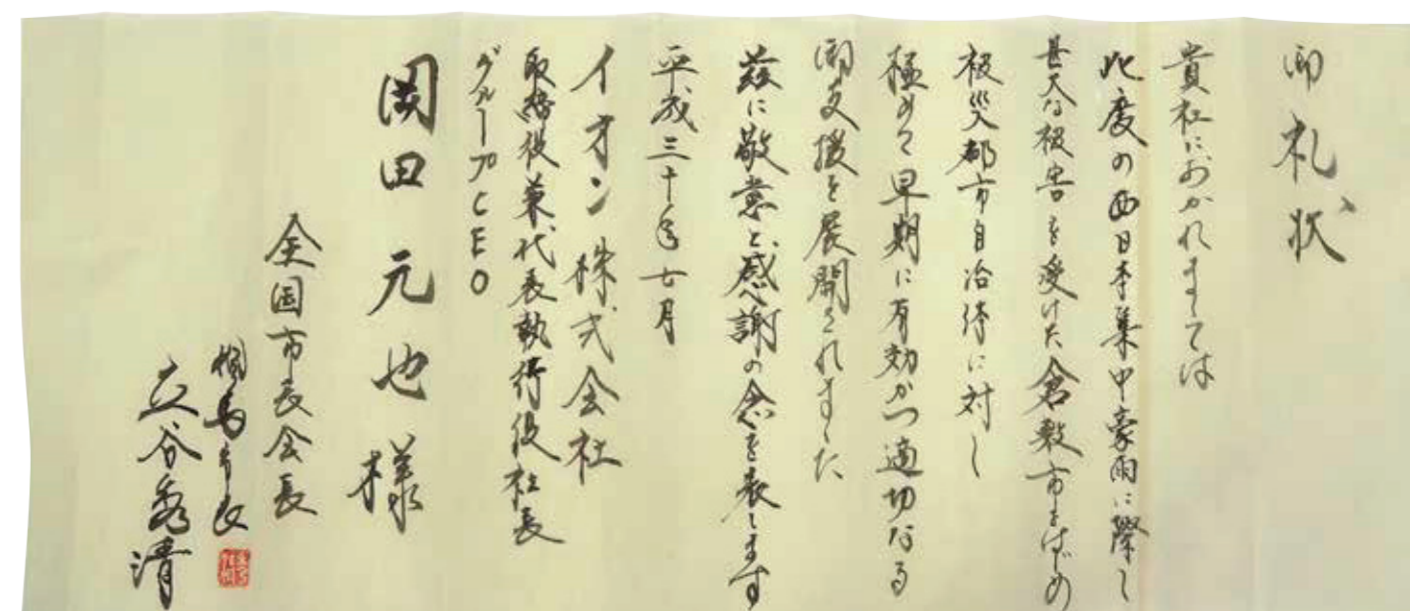 御礼状
貴社におかれましては
此度の西日本集中豪雨に際し
甚大な被害を受けた倉敷市をはじめ
被災都市自治体に対し
極めて早期に有効かつ適切なる
御支援を展開されました
茲に敬意と感謝の念を表します
平成三十年七月
イオン株式会社
取締役兼代表執行役社長
グループCEO
岡田元也様
全国市長会長
相馬市長
立谷秀清